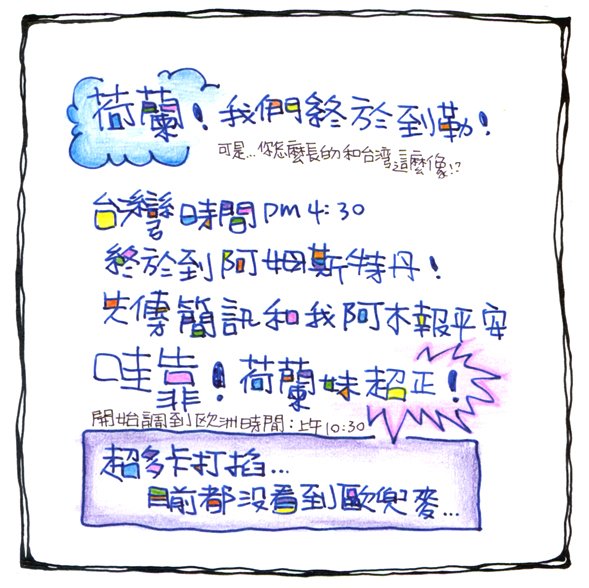 荷蘭！我們終於到勒！
可是...你怎麼長的和台灣這麼像!?
台灣時間pm4:30
終於到阿姆斯特丹！
先傳簡訊和我阿木報平安
哇靠！荷蘭妹超正！
開始調到歐洲時間：上午10:30
超多卡打掐...
目前都沒看到歐兜麥...